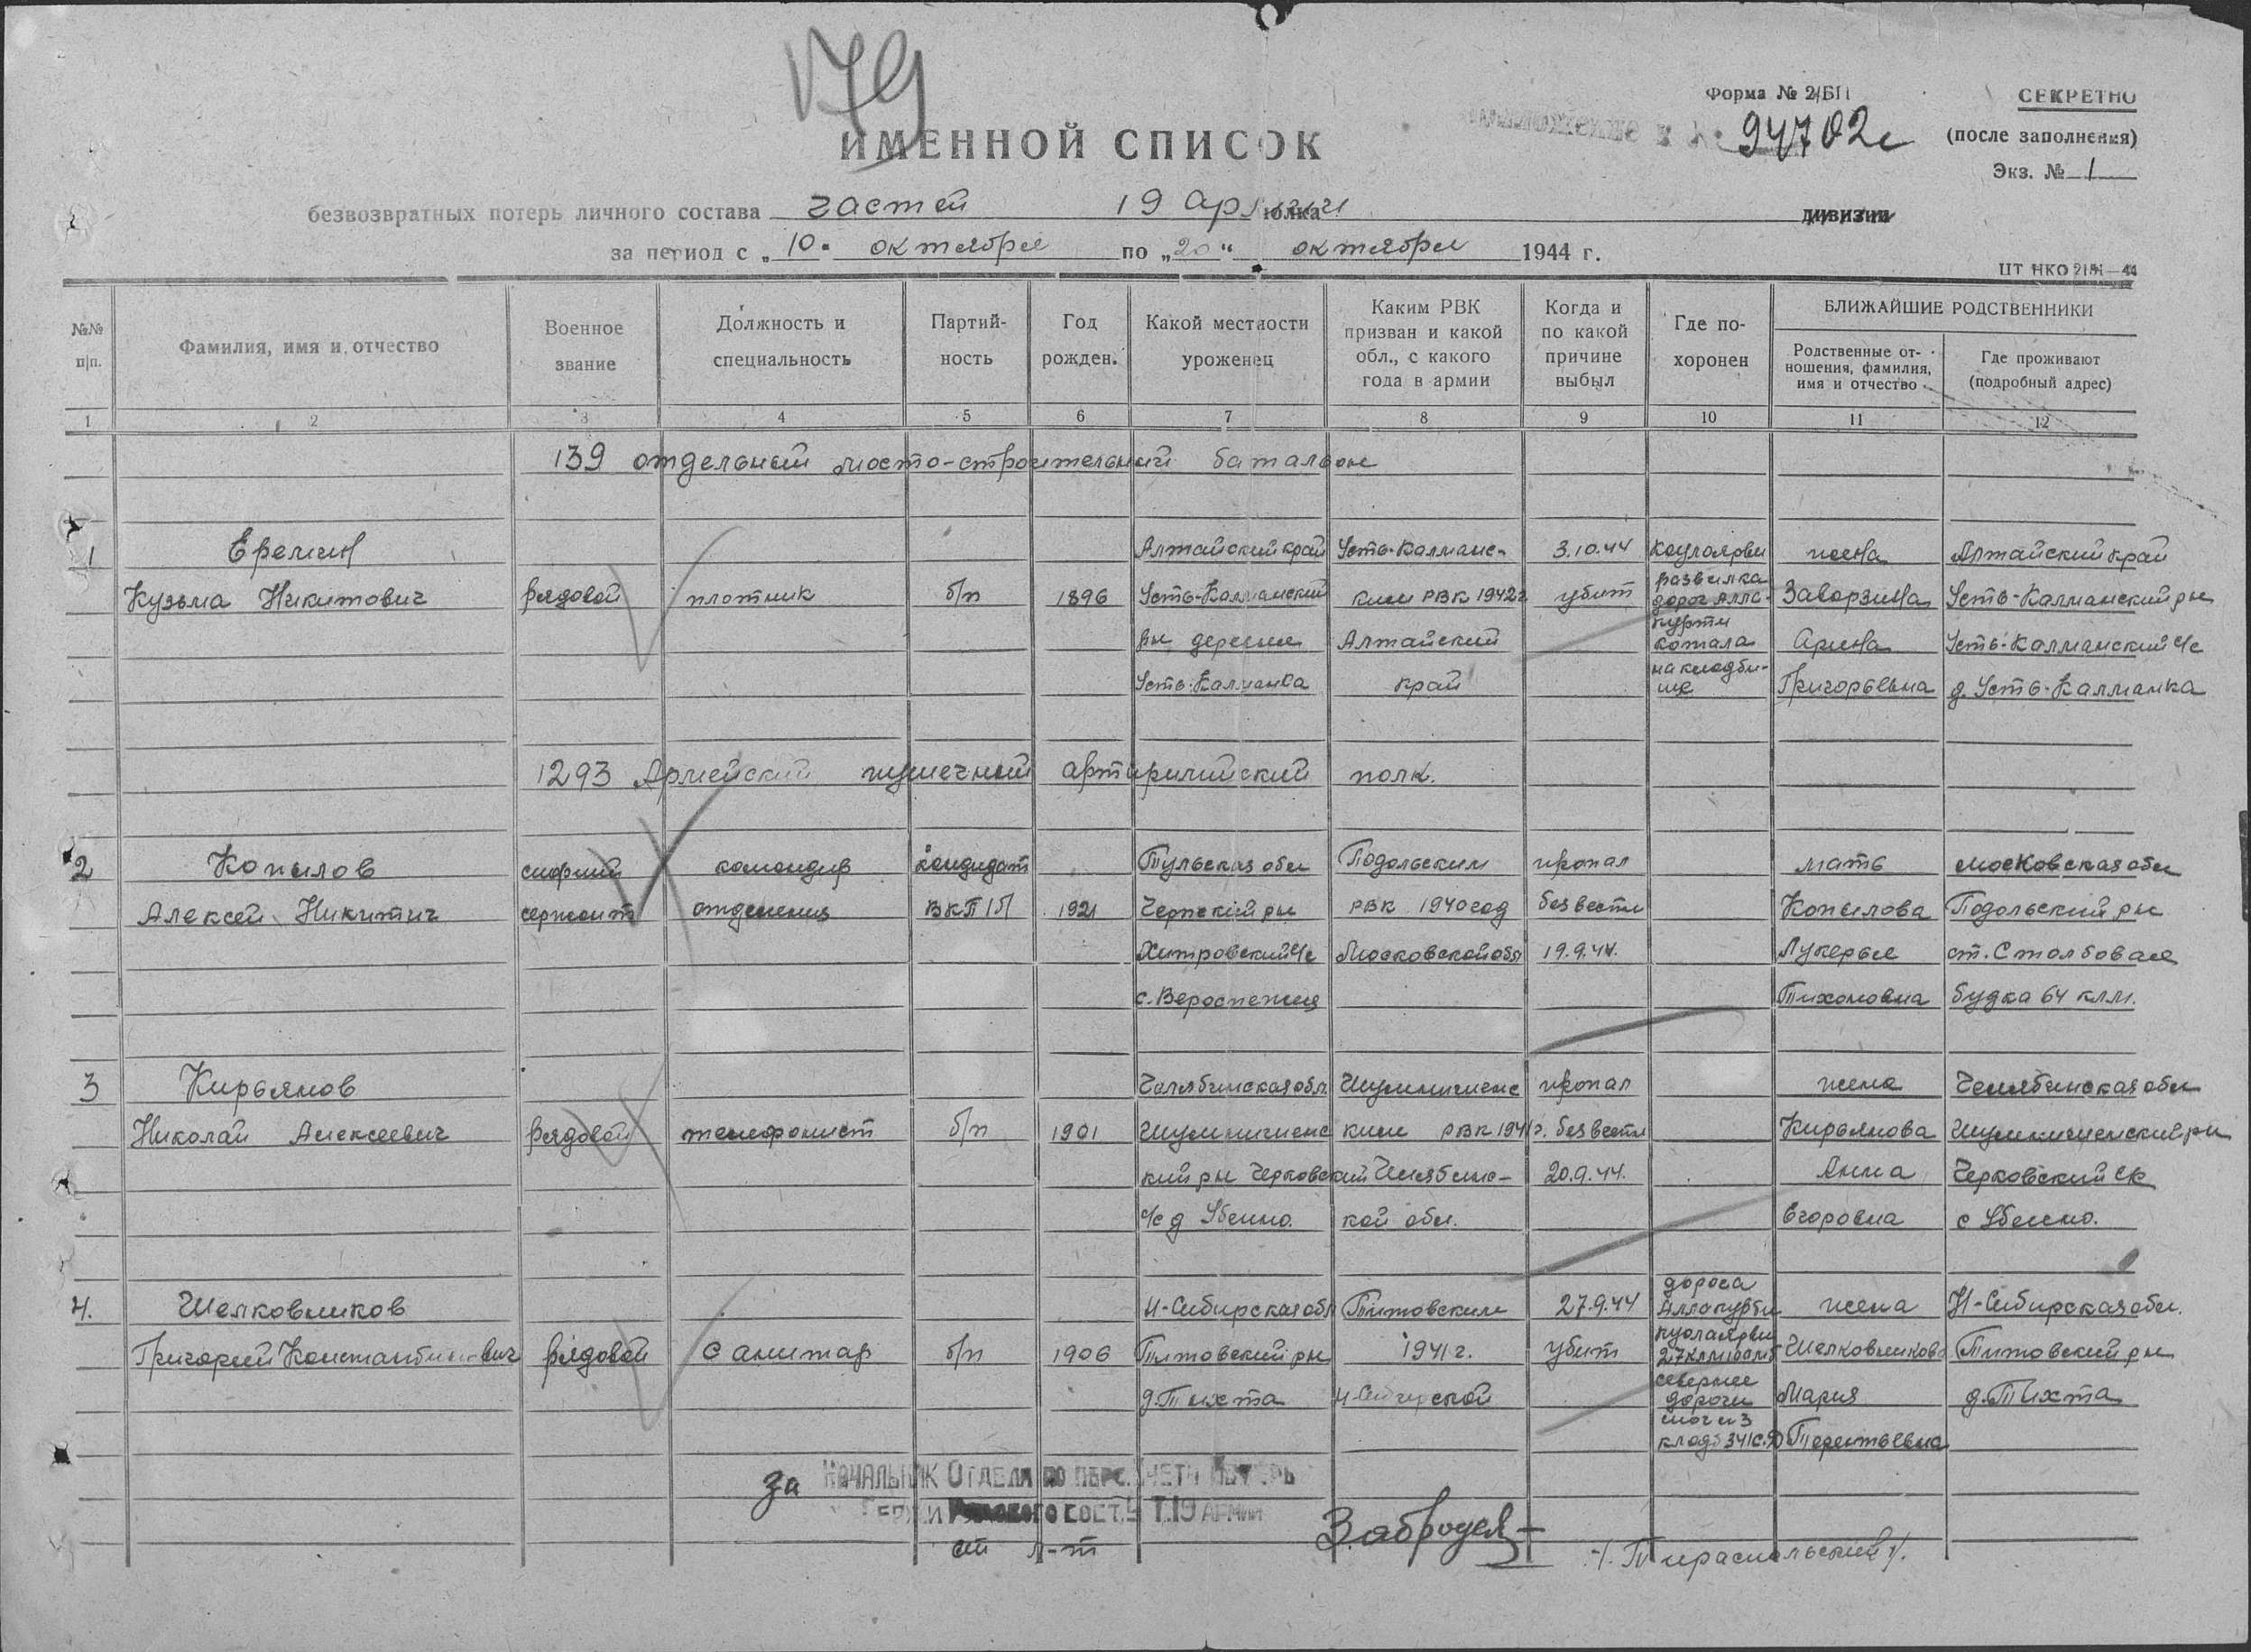 179
Форма № 2/БП
СЕКРЕТНО
94702с
(после заполнения)
Экз. № 1
ИМЕННОЙ СПИСОК
безвозвратных потерь личного состава частей 19 армии полка дивизии
за период с „10“ октября по „20“ октября 1944 г.
№№ п|п.
Фамилия, имя и отчество
Военное звание
Должность и специальность
Партийность
Год рожден.
Какой местности уроженец
Каким РВК призван и какой обл., с какого года в армии
Когда и по какой причине выбыл
Где похоронен
БЛИЖАЙШИЕ РОДСТВЕННИКИ
Родственные отношения, фамилия, имя и отчество
Где проживают (подробный адрес)
1 2 3 4 5 6 7 8 9 10 11 12
139 отдельный мосто-строительный баталион
1 Еремин Алтайский край Усть-Калманс- 3.10.44 жена Алтайский край
Кузьма Никитович рядовой плотник б/п 1896 Усть-Калманский ким РВК 1942г убит развилка дорог Алла- Заворзина Усть-Калманский рн
рн деревня Алтайский курти Арина Усть-Калманский с/с
Усть-Калманка край на кладби- ще Григорьевна д. Усть-Калманка
1293 Армейский пушечный артирилийский полк.
2 Копылов старший командир кандидат Тульская обл Подольским пропал мать Московская обл
Алексей Никитич сержант отделения ВКП/б/ 1921 Чернский рн РВК 1940 год без вести Копылова Подольский рн
Хитровский с/с Московской обл 19.9.44. Лукерья ст. Столбовая
Тихоновна будка 64 клм.
3 Кирьянов Челябинская обл. пропал жена Челябинская обл
Николай Алексеевич рядовой телефонист б/п 1901 ким РВК 1941г. без вести Кирьянова
кий рн Челябинс- 20.9.44. Анна
с/с д кой обл. Егоровна с
4. Шелковников Н-Сибирская обл Титовским 27.9.44 дорога Аллакурти жена Н-Сибирская обл.
Григорий Константинович рядовой санитар б/п 1906 Титовский рн 1941г. убит куолаярви Шелковникова Титовский рн
д. Тихта Н-Сибирской севернее дороги Мария д. Тихта
клад. 341 с.д. Терентьевна
за НАЧАЛЬНИК ОТДЕЛА ПО ПЕРС. УЧЕТУ ПОТЕРЬ
19 АРМИИ
ст л-т
Забродея
/Тираспольский/.